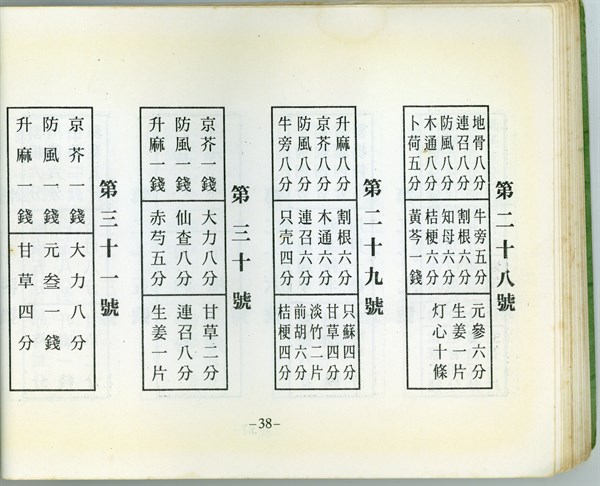 第二十八號
地骨八分
連召八分
防風八分
木通八分
卜荷五分
牛旁五分
割根六分
知母六分
桔梗六分
黃芩一錢
元參六分
生姜一片
灯心十條
第二十九號
升麻八分
京芥八分
防風八分
牛旁八分
割根六分
木通六分
連召六分
只壳四分
只蘇四分
甘草四分
淡竹二片
前胡六分
桔梗四分
第三十號
京芥一錢
防風一錢
升麻一錢
大力八分
仙查八分
赤芍五分
甘草二分
連召八分
生姜一片
第三十一號
京芥一錢
防風一錢
升麻一錢
大力八分
元叁一錢
甘草四分
–38–